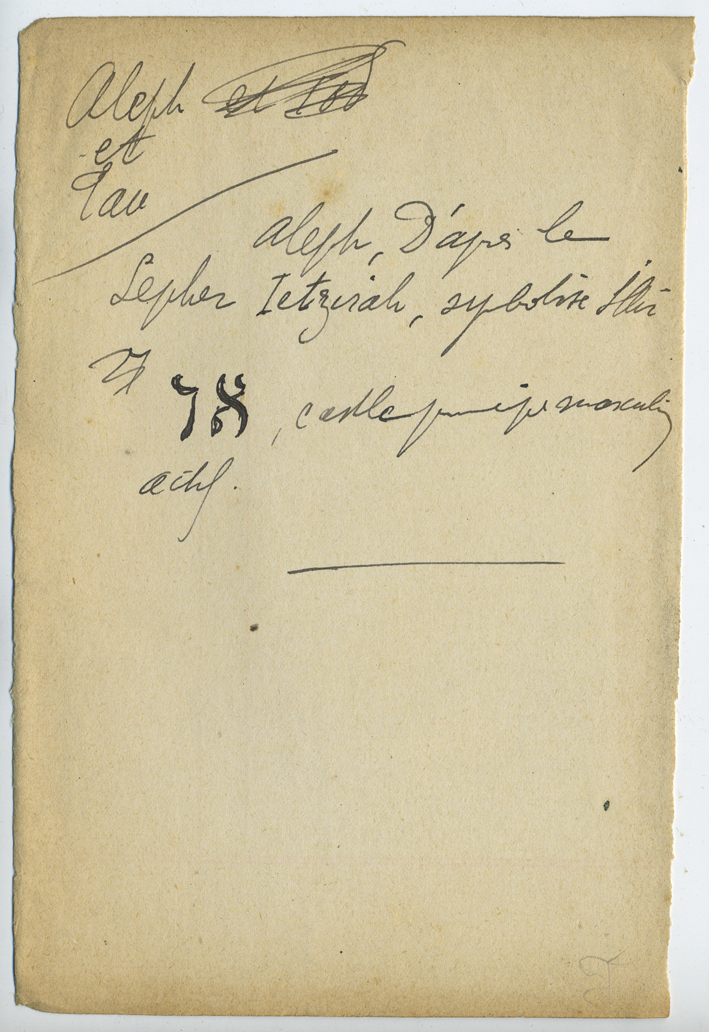 Aleph
et
Tau
Aleph, D'après le
Sepher Ietzirah, sybolise l'Air
א, c'est le principe masculin
actif.